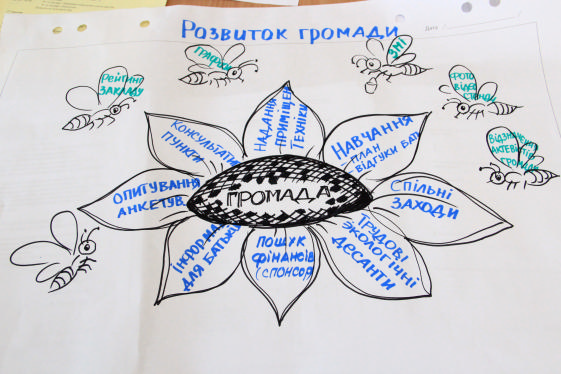 Розвиток громади
Дата
Рейтинг
закладу
ЗМІ
Фото
Відео
громади
Консультати
пункти
Надання
приміщен
Техніки
Навчання
план
відгуки бать
Опитування
Анкетув
ГРОМАДА
Спільні
заходи
Інформ
для батьків
Пошук
фінансів
(спонсор)
Трудові
экологічні
десанти